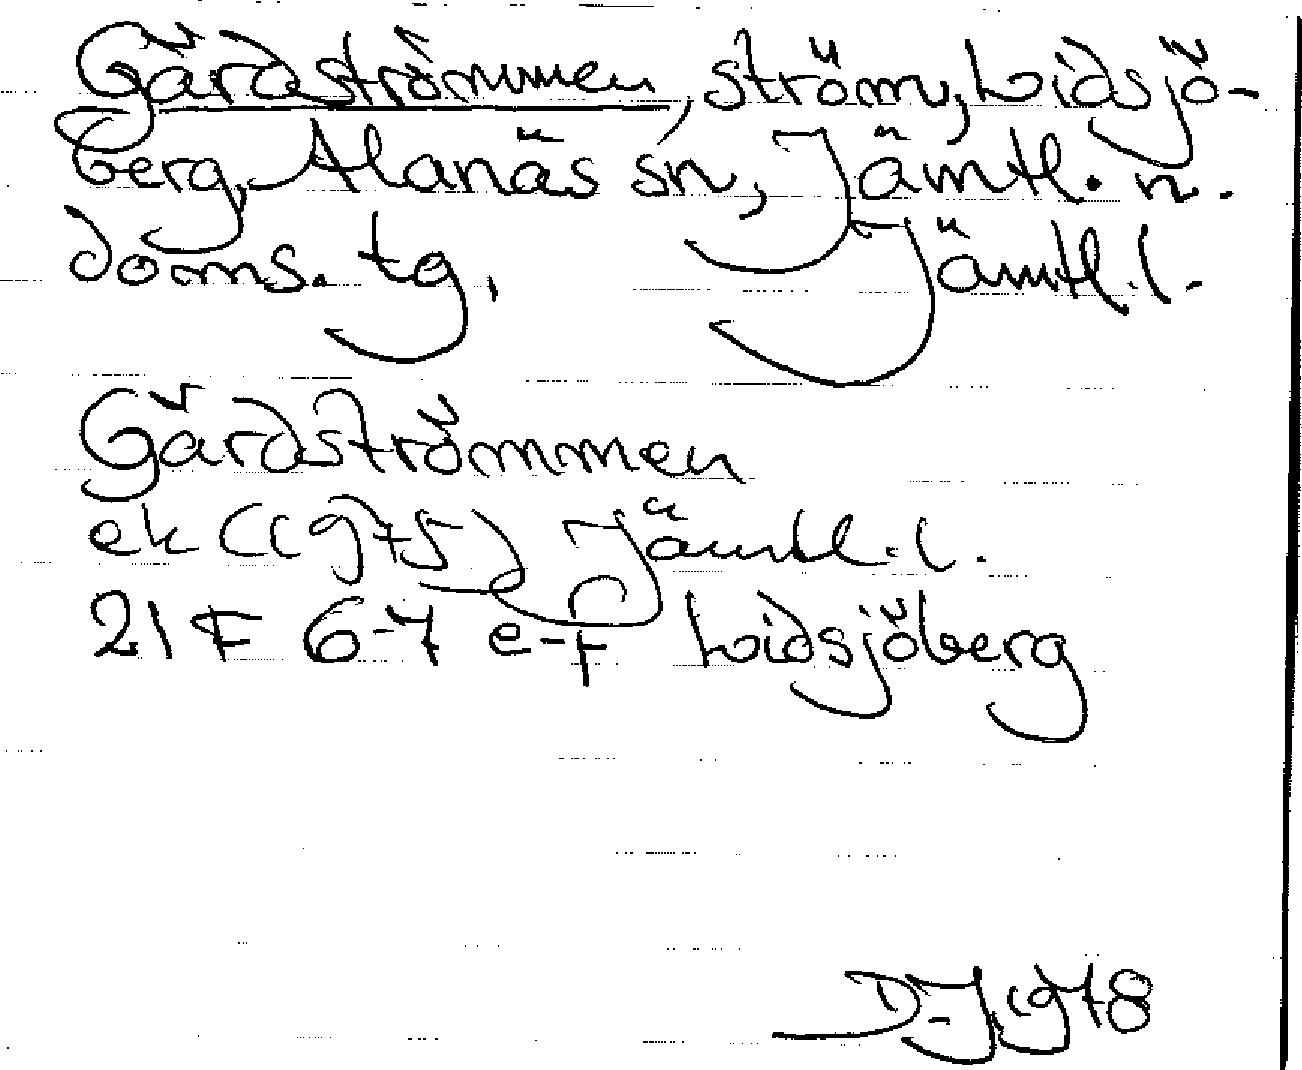 Gärdströmmen, ström, Lidsjö-
berg, Alanäs sn, Jämtl. n.
doms. tg, Jämtl. l.
Gärdströmmen
ek (1975) Jämtl. l.
21 F 6-7 e-f Lidsjöberg
D-J, 1978